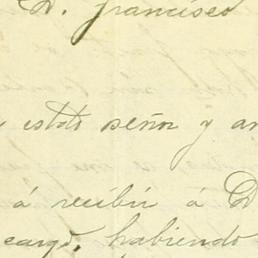 D. Francisco
estado señor y
á recibir á D
cargo, habiendo